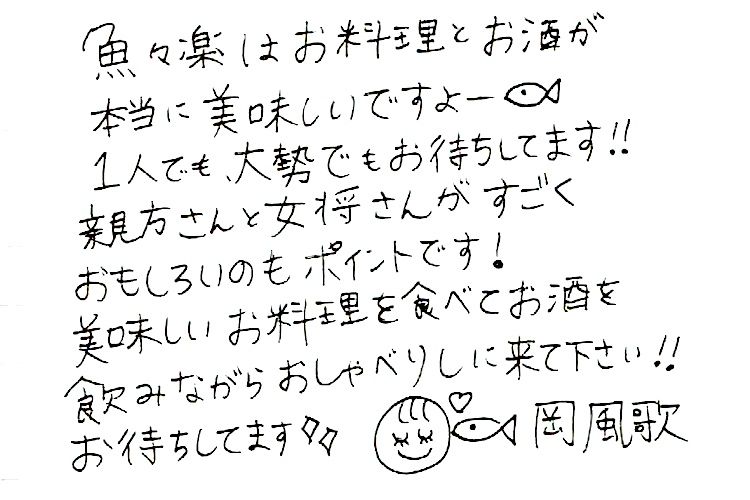 魚々楽はお料理とお酒が
本当に美味しいですよー
1人でも、大勢でもお待ちしてます!!
親方さんと女将さんがすごく
おもしろいのもポイントです!
美味しいお料理を食べてお酒を
飲みながらおしゃべりしに来て下さい!!
お待ちしてます
岡風歌